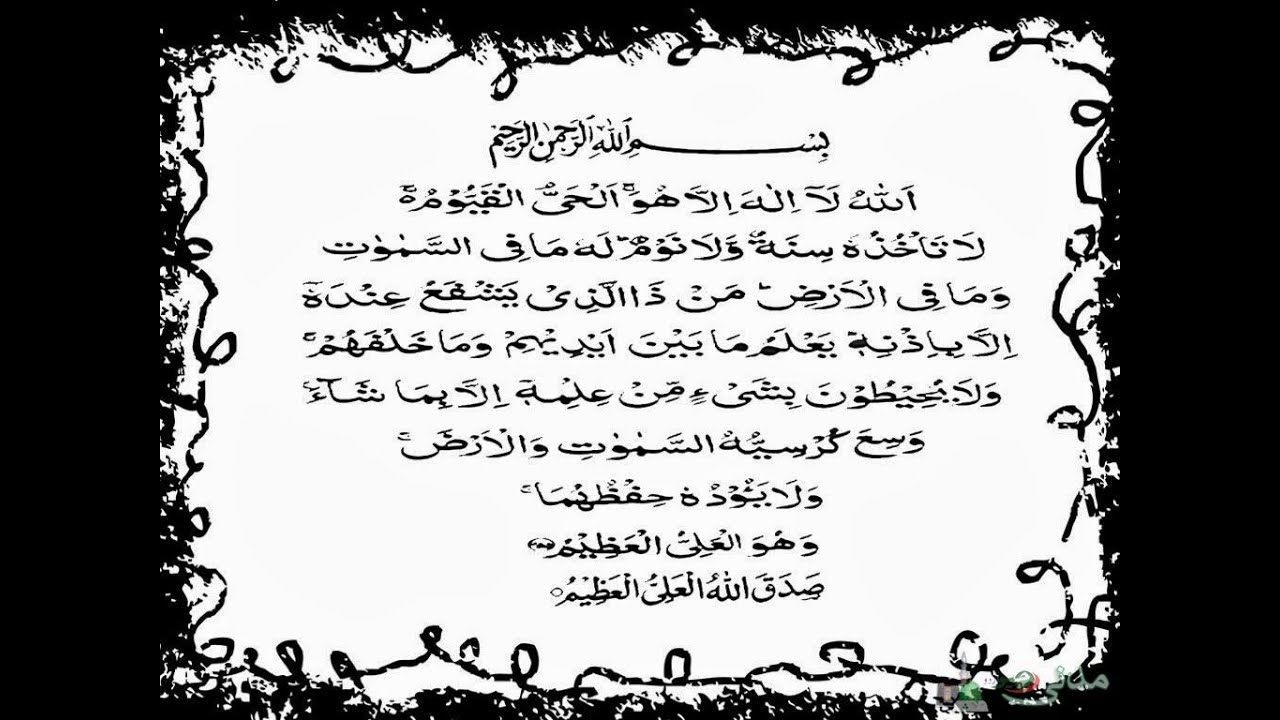 بِسْمِ اللّٰهِ الرَّحْمٰنِ الرَّحِيْمِ
اَللّٰهُ لَآ اِلٰهَ اِلَّا هُوَ ۚ اَلْحَىُّ الْقَيُّوْمُ ۚ
لَا تَاْخُذُهٗ سِنَةٌ وَّلَا نَوْمٌ ؕ لَهٗ مَا فِى السَّمٰوٰتِ
وَمَا فِى الْاَرْضِ ؕ مَنْ ذَا الَّذِىْ يَشْفَعُ عِنْدَهٗٓ
اِلَّا بِاِذْنِهٖ ؕ يَعْلَمُ مَا بَيْنَ اَيْدِيْهِمْ وَمَا خَلْفَهُمْ ۚ
وَلَا يُحِيْطُوْنَ بِشَىْءٍ مِّنْ عِلْمِهٖٓ اِلَّا بِمَا شَآءَ ۚ
وَسِعَ كُرْسِيُّهُ السَّمٰوٰتِ وَالْاَرْضَ ۚ
وَلَا يَئُوْدُهٗ حِفْظُهُمَا ۚ
وَهُوَ الْعَلِىُّ الْعَظِيْمُ
صَدَقَ اللّٰهُ الْعَلِىُّ الْعَظِيْمُ
مدنی